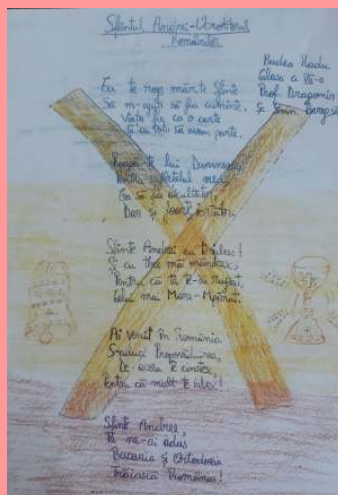 Sfântul Andrei - Ocrotitorul
Românilor
Radu
Clasa a
Prof. Dragomir
Eu te rog mărite Sfinte
Să m-ajuți să fiu cuminte.
Viața fie ca o carte
Și cu toții să avem parte.
lui Dumnezeu
Pentru
Ca să fiu ascultător
Dar și foarte
Sfinte Andrei eu te iubesc!
Și cu tine mă mândresc
Pentru că tu te-ai rugat,
Celui mai Mare-Mpărat.
Ai venit în România
S-aduci Propovăduirea,
De aceea te cinstesc,
Pentru că mult te iubesc!
Sfinte Andrei
Tu ne-ai adus
Bucuria și Ortodoxia
Trăiască Românus!